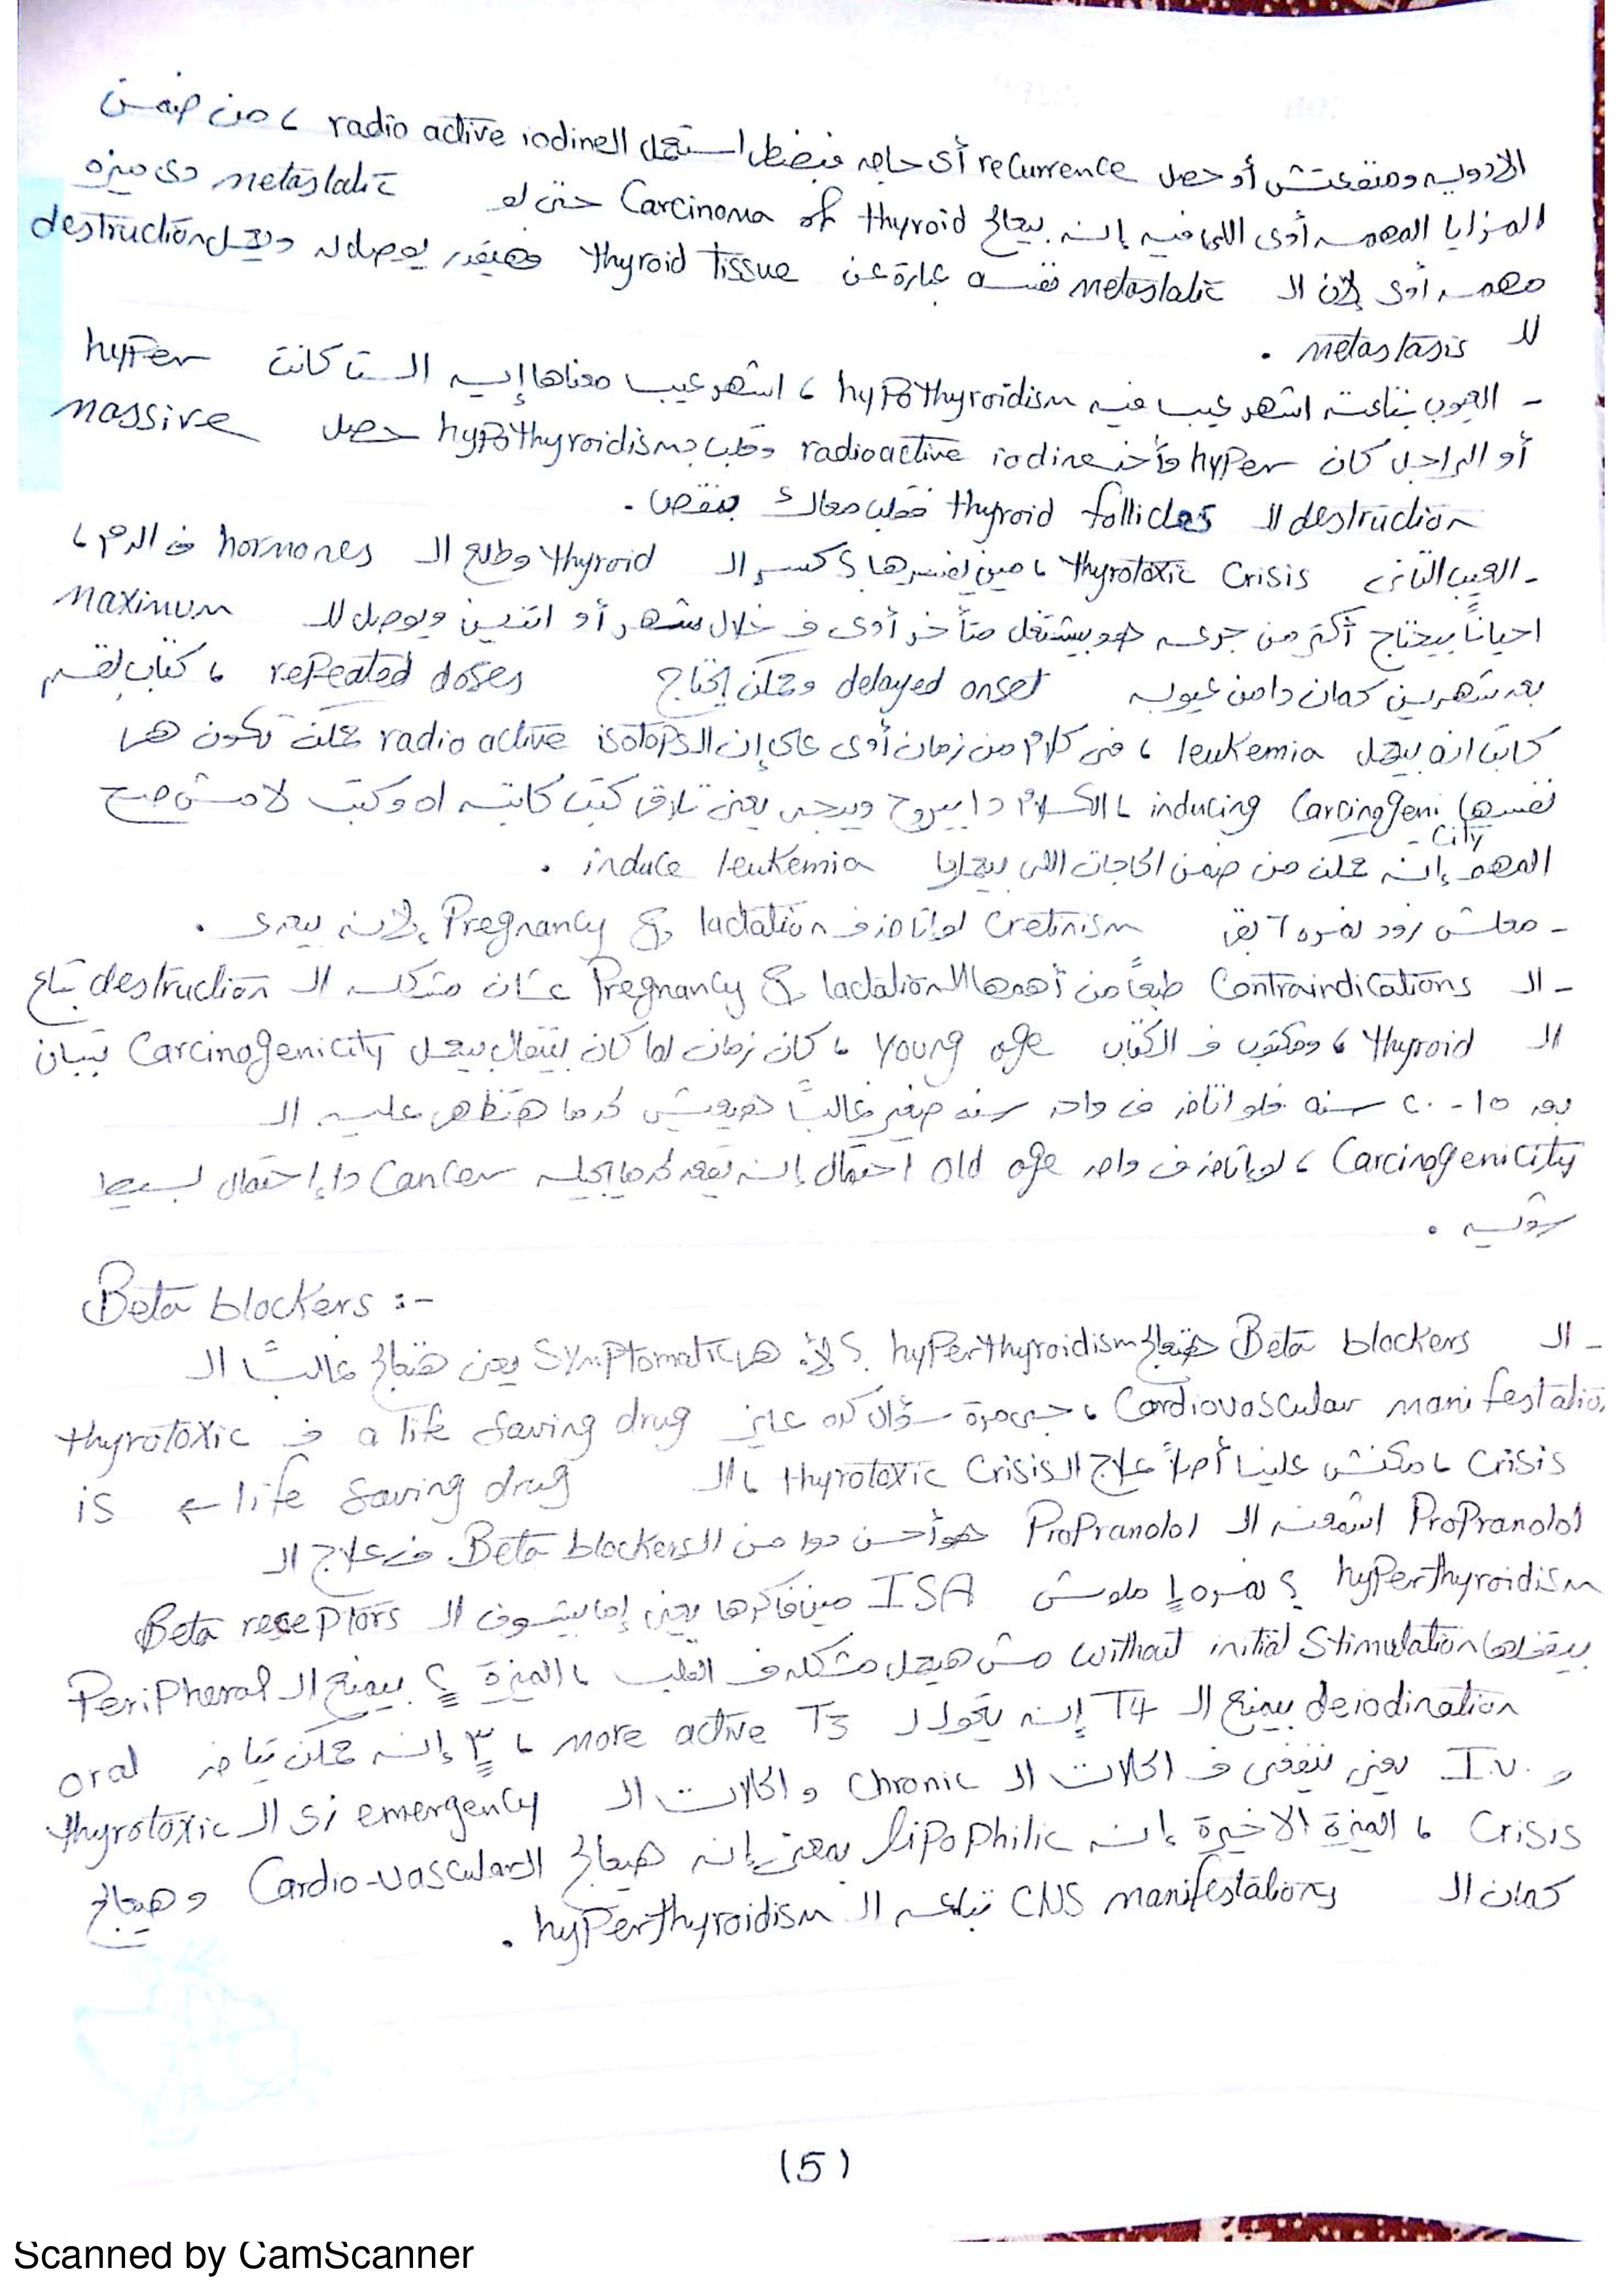 الأدوية ومنفعتش أو حصل recurrence أى حاجه فبضطر استعمل الـ radio active iodine ، من ضمن
المزايا المهمه أوى اللى فيه إنه بيعالج Carcinoma of thyroid حتى لو metastatic دى ميزه
مهمه أوى لأن الـ metastatic نفسه عبارة عن thyroid tissue فهيقدر يوصله ويعمل destruction
للـ metastasis .
- العيوب بتاعته اشهر عيب فيه hypothyroidism ، اشهر عيب معناها إيه الست كانت hyper
أو الراجل كان hyper وأخد radioactive iodine وقلب بـ hypothyroidism حصل massive
destruction للـ thyroid follicles فقلب معاك بنقص .
- العيب التانى thyrotoxic crisis ، مين يفسرها ؟ كسر الـ thyroid وطلع الـ hormones فى الدم ،
احياناً بيحتاج أكتر من جرعه هو بيشتغل متأخر أوى فى خلال شهر أو اتنين ويوصل للـ maximum
بعد شهرين كمان دا من عيوبه delayed onset وممكن يحتاج repeated doses ، كتاب القسم
كاتب انه بيعمل leukemia ، فى كلام من زمان أوى على إن الـ radio active isotops ممكن تكون هى
نفسها inducing Carcinogeni ، الكلام دا بيروح وييجى يعنى تلاقى كتب كاتبه اه وكتب لا مش صح
- city
المهم إنه ممكن من ضمن الحاجات اللى بيعملها induce leukemia .
- معلش نزود نمره ٦ بقى cretinism لو اتاخد فى lactation & Pregnancy لأنه بيعدى .
- الـ Contraindications طبعاً من أهمها الـ lactation & Pregnancy عشان مشكله الـ destruction بتاع
الـ thyroid ، ومكتوب فى الكتاب young age ، كان زمان لما كان بيتقال بيعمل Carcinogenicity تبان
بعد ١٥ - ٢٠ سنه فلو اتاخد فى واحد سنه صغير غالباً هيعيش لحد ما هتظهر عليه الـ
Carcinogenicity ، لو اتاخد فى واحد old age احتمال إنه يقعد لحد ما يجيله Cancer دا إحتمال بسيط
شويه .
Beta blockers :-
- الـ Beta blockers هتعالج hyperthyroidism ؟ لأ. هى Symptomatic يعنى هتعالج غالباً الـ
Cardiovascular manifestatio ، جى مرة سؤال كده عايز a life saving drug فى thyrotoxic
crisis ، مكنش علينا أصلاً علاج الـ thyrotoxic crisis ، الـ life saving drug ← is
Propranolol اشمعنه الـ Propranolol هو أحسن دوا من الـ Beta blockers فى علاج الـ
hyperthyroidism ؟ نمره ١ ملوش ISA مين فاكرها يعنى إما بيشوف الـ Beta receptors
بيقفلها without initial stimulation مش هيعمل مشكله فى القلب ، الميزة ٢ بيمنع الـ Peripheral
deiodination بيمنع الـ T4 إنه يتحول لـ more active T3 ، ٣ إنه ممكن يتاخد oral
و I.V. يعنى ينفعنى فى الحالات الـ chronic و الحالات الـ emergency زى الـ thyrotoxic
crisis ، الميزة الاخيرة إنه lipophilic بمعنى إنه هيعالج الـ Cardio-vascular و هيعالج
كمان الـ CNS manifestations بتاعه الـ hyperthyroidism .
(5)
Scanned by CamScanner